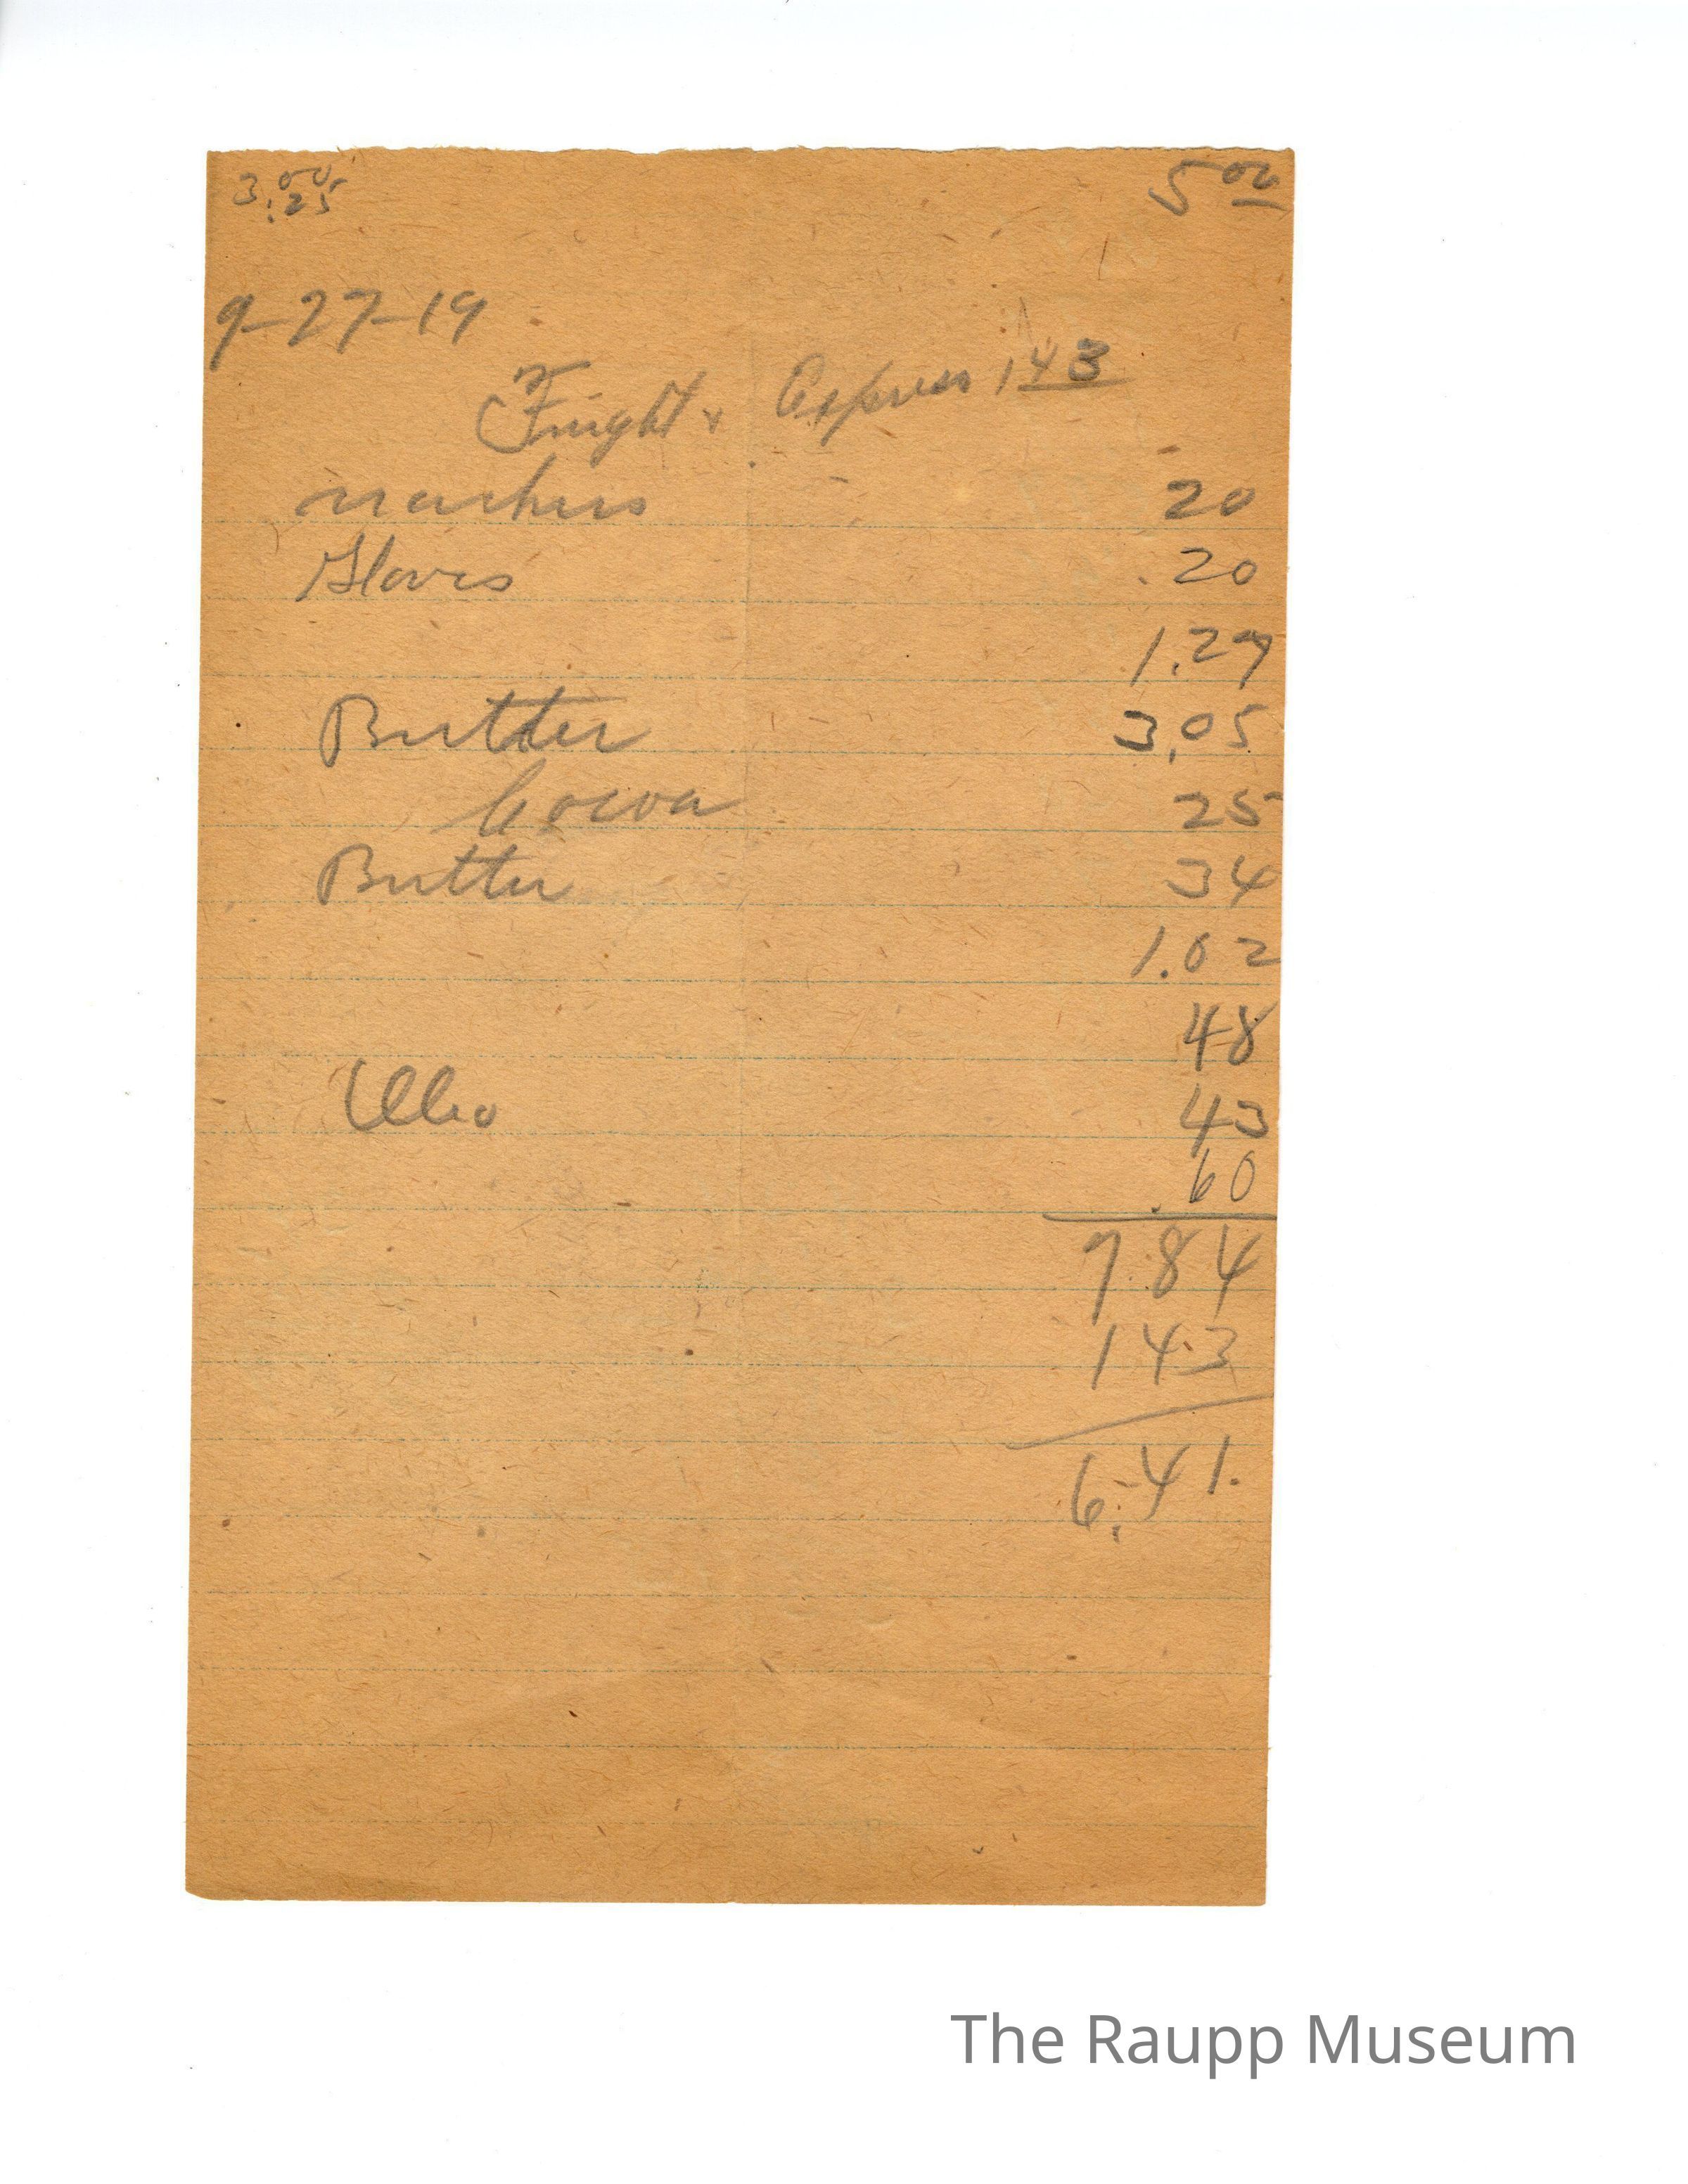 3.00
.25
5 00
9-27-19
Freight & Express 1 43
washers 20
Gloves .20
1.27
Butter 3,05
Cocoa 25
Butter 34
1.02
48
Oleo 43
.60
7.84
1 43
6.41.
The Raupp Museum